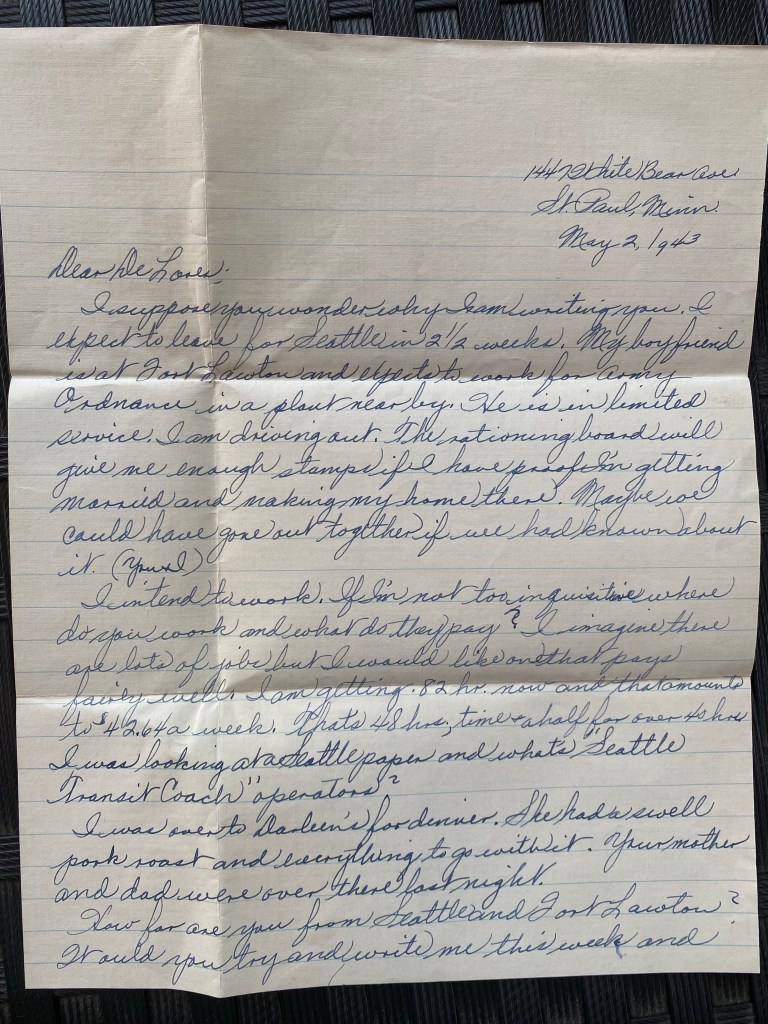 1447 White Bear Ave.
St. Paul, Minn.
May 2, 1943
Dear De Lores;
I suppose you wonder why I am writing you. I
expect to leave for Seattle in 2 1/2 weeks. My boyfriend
is at Fort Lawton and expects to work for Army
Ordnance in a plant near by. He is in limited
service. I am driving out. The rationing board will
give me enough stamps if I have proof I'm getting
married and making my home there. Maybe we
could have gone out together if we had known about
it. (You & I)
I intend to work. If I'm not too inquisitive where
do you work and what do they pay? I imagine there
are lots of jobs but I would like one that pays
fairly well. I am getting .82 hr. now and that amounts
to $42.64 a week. That's 48 hrs, time & a half for over 40 hrs
I was looking at a Seattle paper and what's "Seattle
Transit Coach" operators?
I was over to Darleen's for dinner. She had a swell
pork roast and everything to go with it. Your mother
and dad were over there last night.
How far are you from Seattle and Fort Lawton?
Would you try and write me this week and